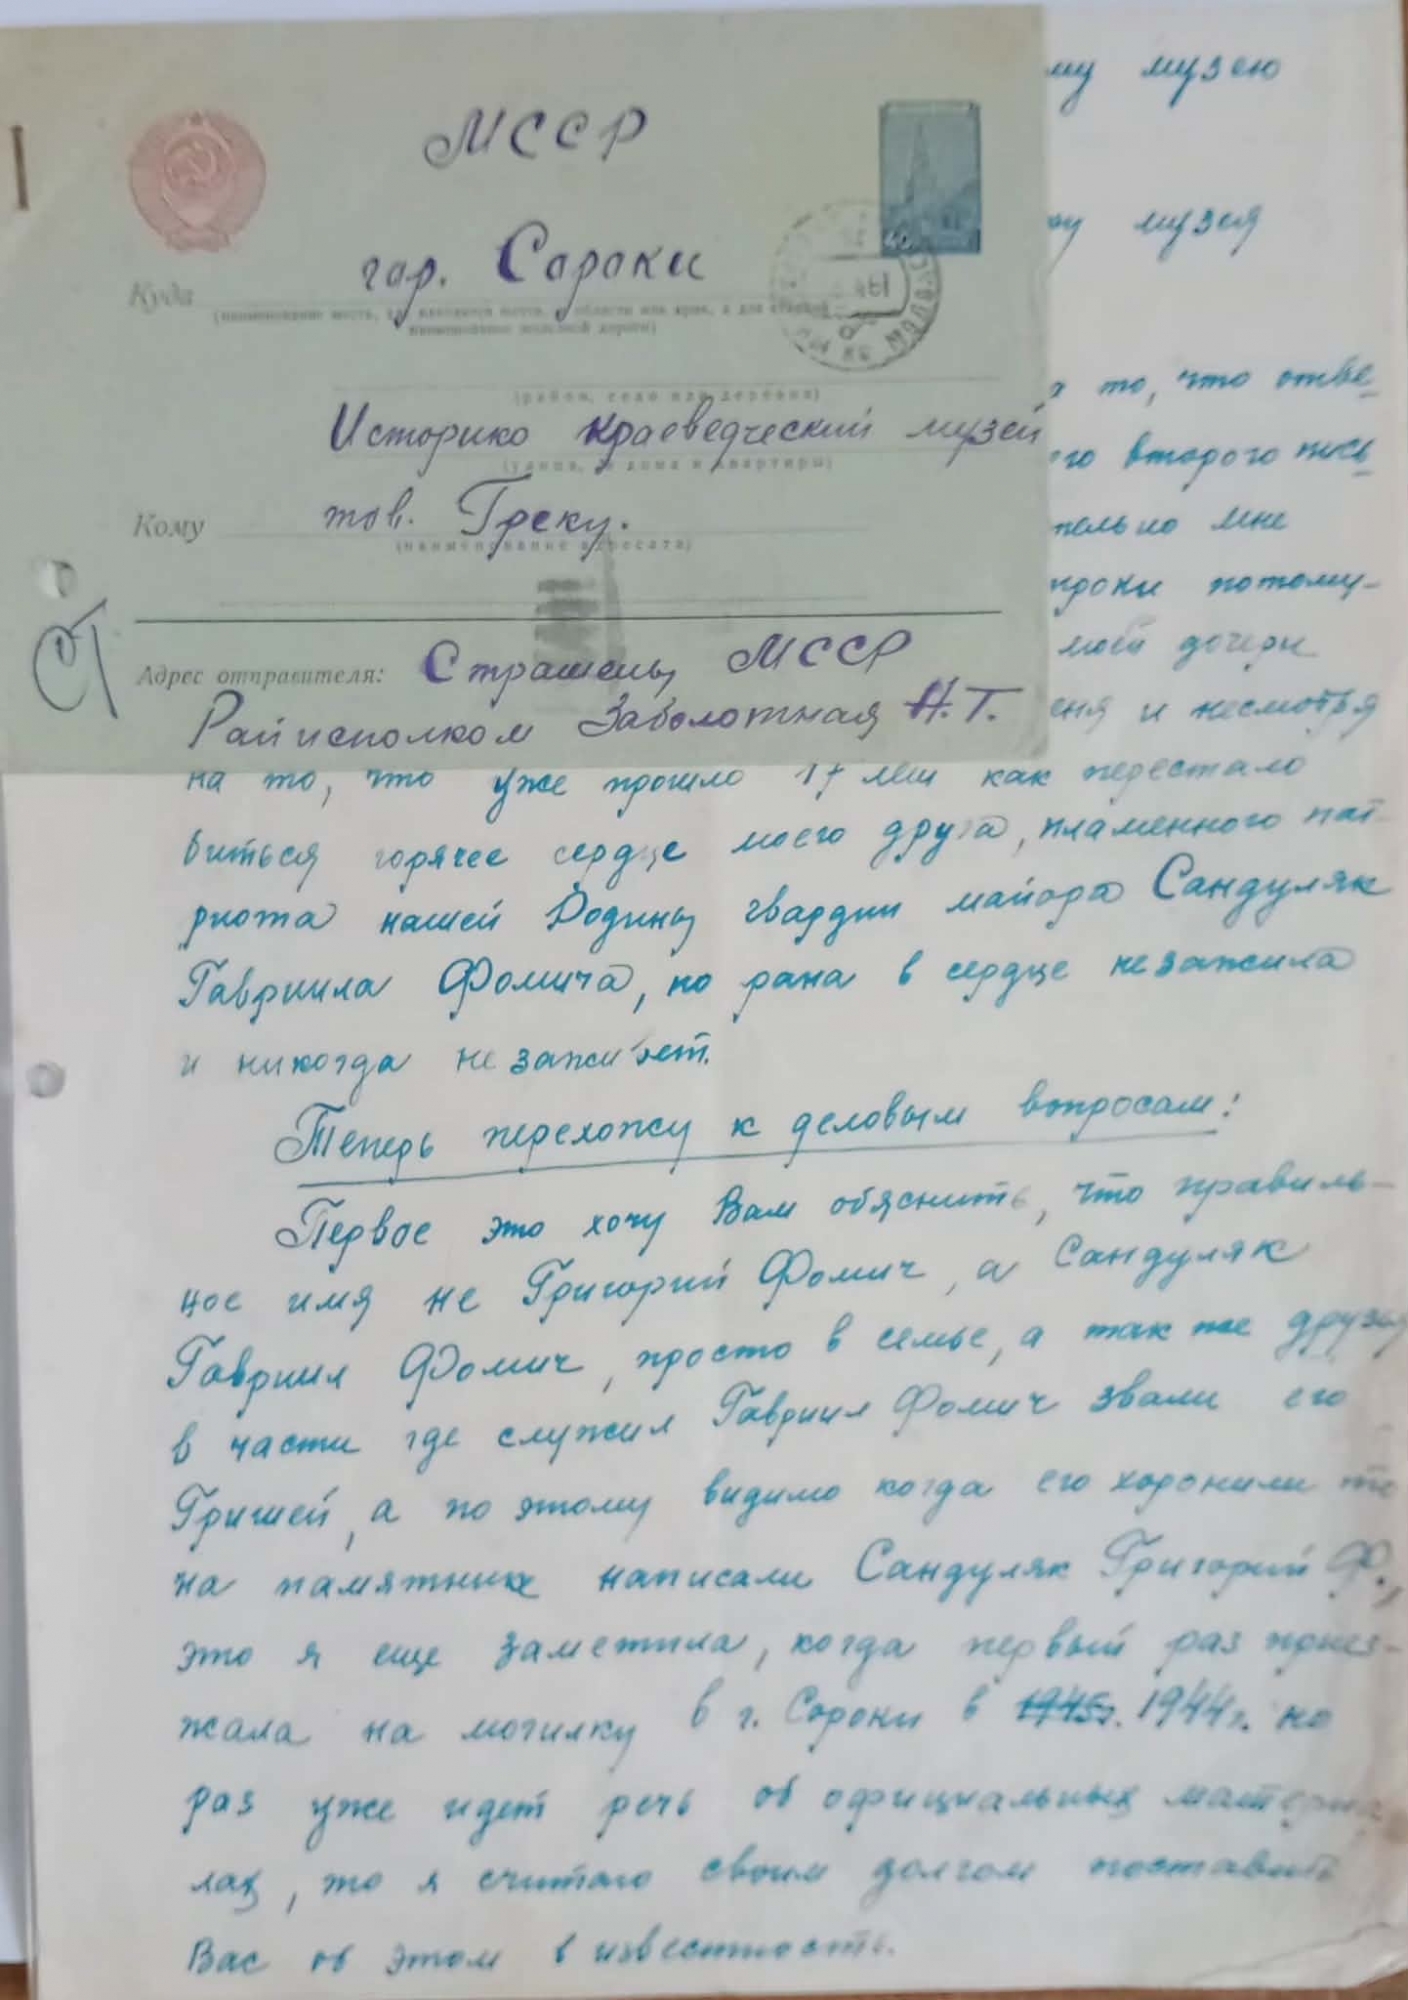 МССР
гор. Сороки
Куда
(район, село или деревня)
Историко краеведческий музей
Кому
тов. Греку.
(наименование адресата)
Адрес отправителя: Страшены МССР
Райисполком Заболотная Н.Т.
40
му музею
музея
то, что отве-
го второго пись
тельно мне
роки потому-
моей дочери
еня и несмотря
на то, что уже прошло 17 лет как перестало
биться горячее сердце моего друга, пламенного пат-
риота нашей Родины гвардии майора Сандуляк
Гавриила Фомича, но рана в сердце не зажила
и никогда не заживет.
Теперь перехожу к деловым вопросам:
Первое это хочу Вам обяснить, что правиль-
ное имя не Григорий Фомич, а Сандуляк
Гавриил Фомич, просто в семье, а так же друзья
в части где служил Гавриил Фомич звали его
Гришей, а по этому видимо когда его хоронили то
на памятнике написали Сандуляк Григорий Ф.,
это я еще заметила, когда первый раз приез-
жала на могилку в г. Сороки в 1945г. 1944г. но
раз уже идет речь об официальных материа
лах, то я считаю своим долгом поставить
Вас об этом в известность.